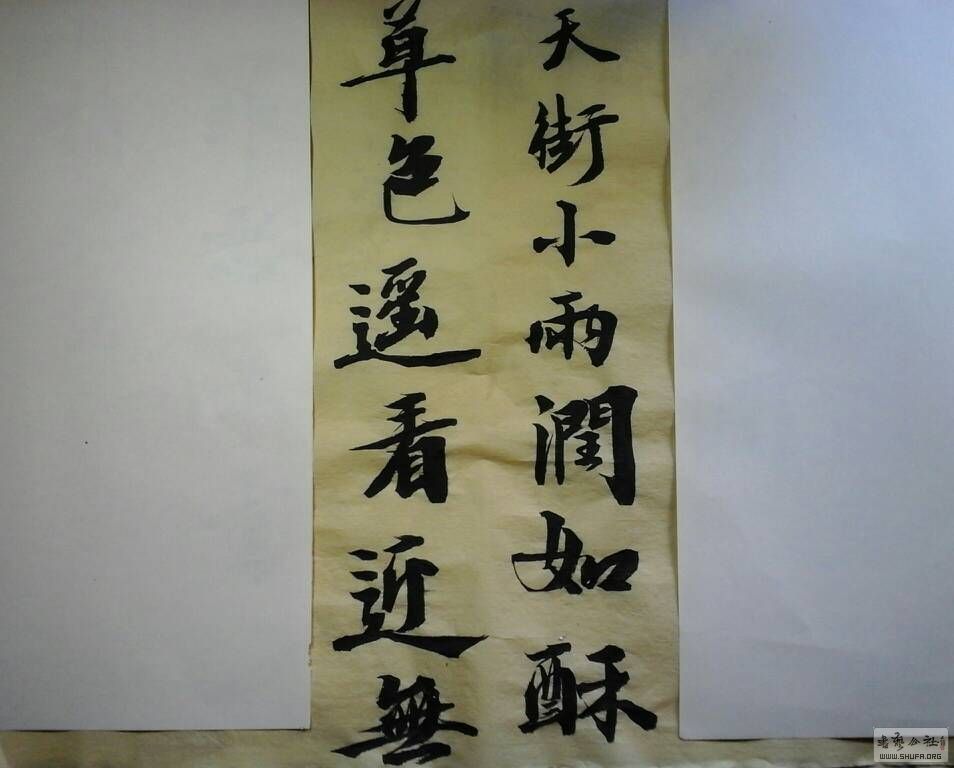 天街小雨潤如酥
草色遥看近無
書藝公社
WWW.SHUFA.ORG